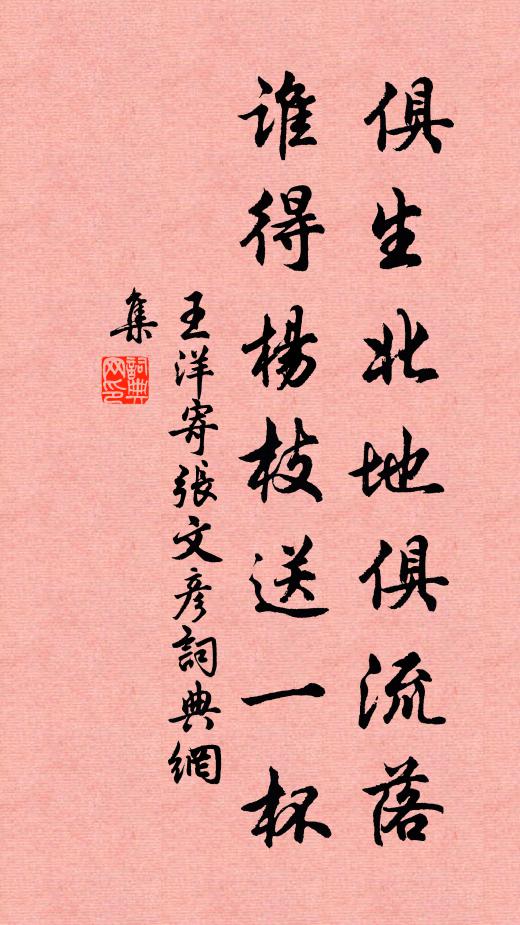 俱生北地俱流落
誰得楊枝送一杯
王洋寄張文彦詞典網
集
詞典
网印